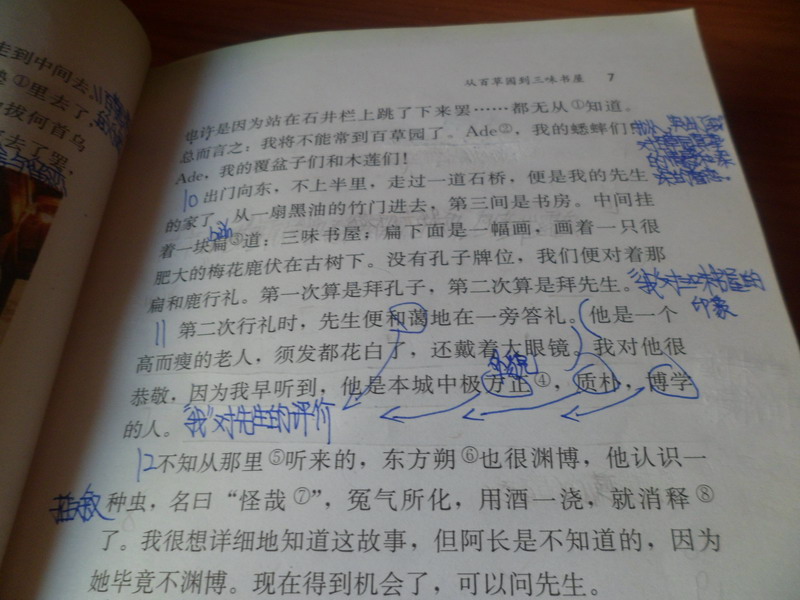 走到中间去
①里去了,
拔何首乌
去了罢,
从百草园到三味书屋 7
也许是因为站在石井栏上跳了下来罢……都无从①知道。
总而言之:我将不能常到百草园了。Ade②,我的蟋蟀们!
Ade,我的覆盆子们和木莲们!
10 出门向东,不上半里,走过一道石桥,便是我的先生
的家了。从一扇黑油的竹门进去,第三间是书房。中间挂
biǎn
着一块扁③道:三味书屋;扁下面是一幅画,画着一只很
肥大的梅花鹿伏在古树下。没有孔子牌位,我们便对着那
扁和鹿行礼。第一次算是拜孔子,第二次算是拜先生。“我”对三味书屋的
印象
11 第二次行礼时,先生便和蔼地在一旁答礼。他是一个
高而瘦的老人,须发都花白了,还戴着大眼镜。我对他很
恭敬,因为我早听到,他是本城中极方正④,质朴,博学
的人。“我”对先生的评价
12 不知从那里⑤听来的,东方朔⑥也很渊博,他认识一
种虫,名曰“怪哉⑦”,冤气所化,用酒一浇,就消释⑧
了。我很想详细地知道这故事,但阿长是不知道的,因为
她毕竟不渊博。现在得到机会了,可以问先生。